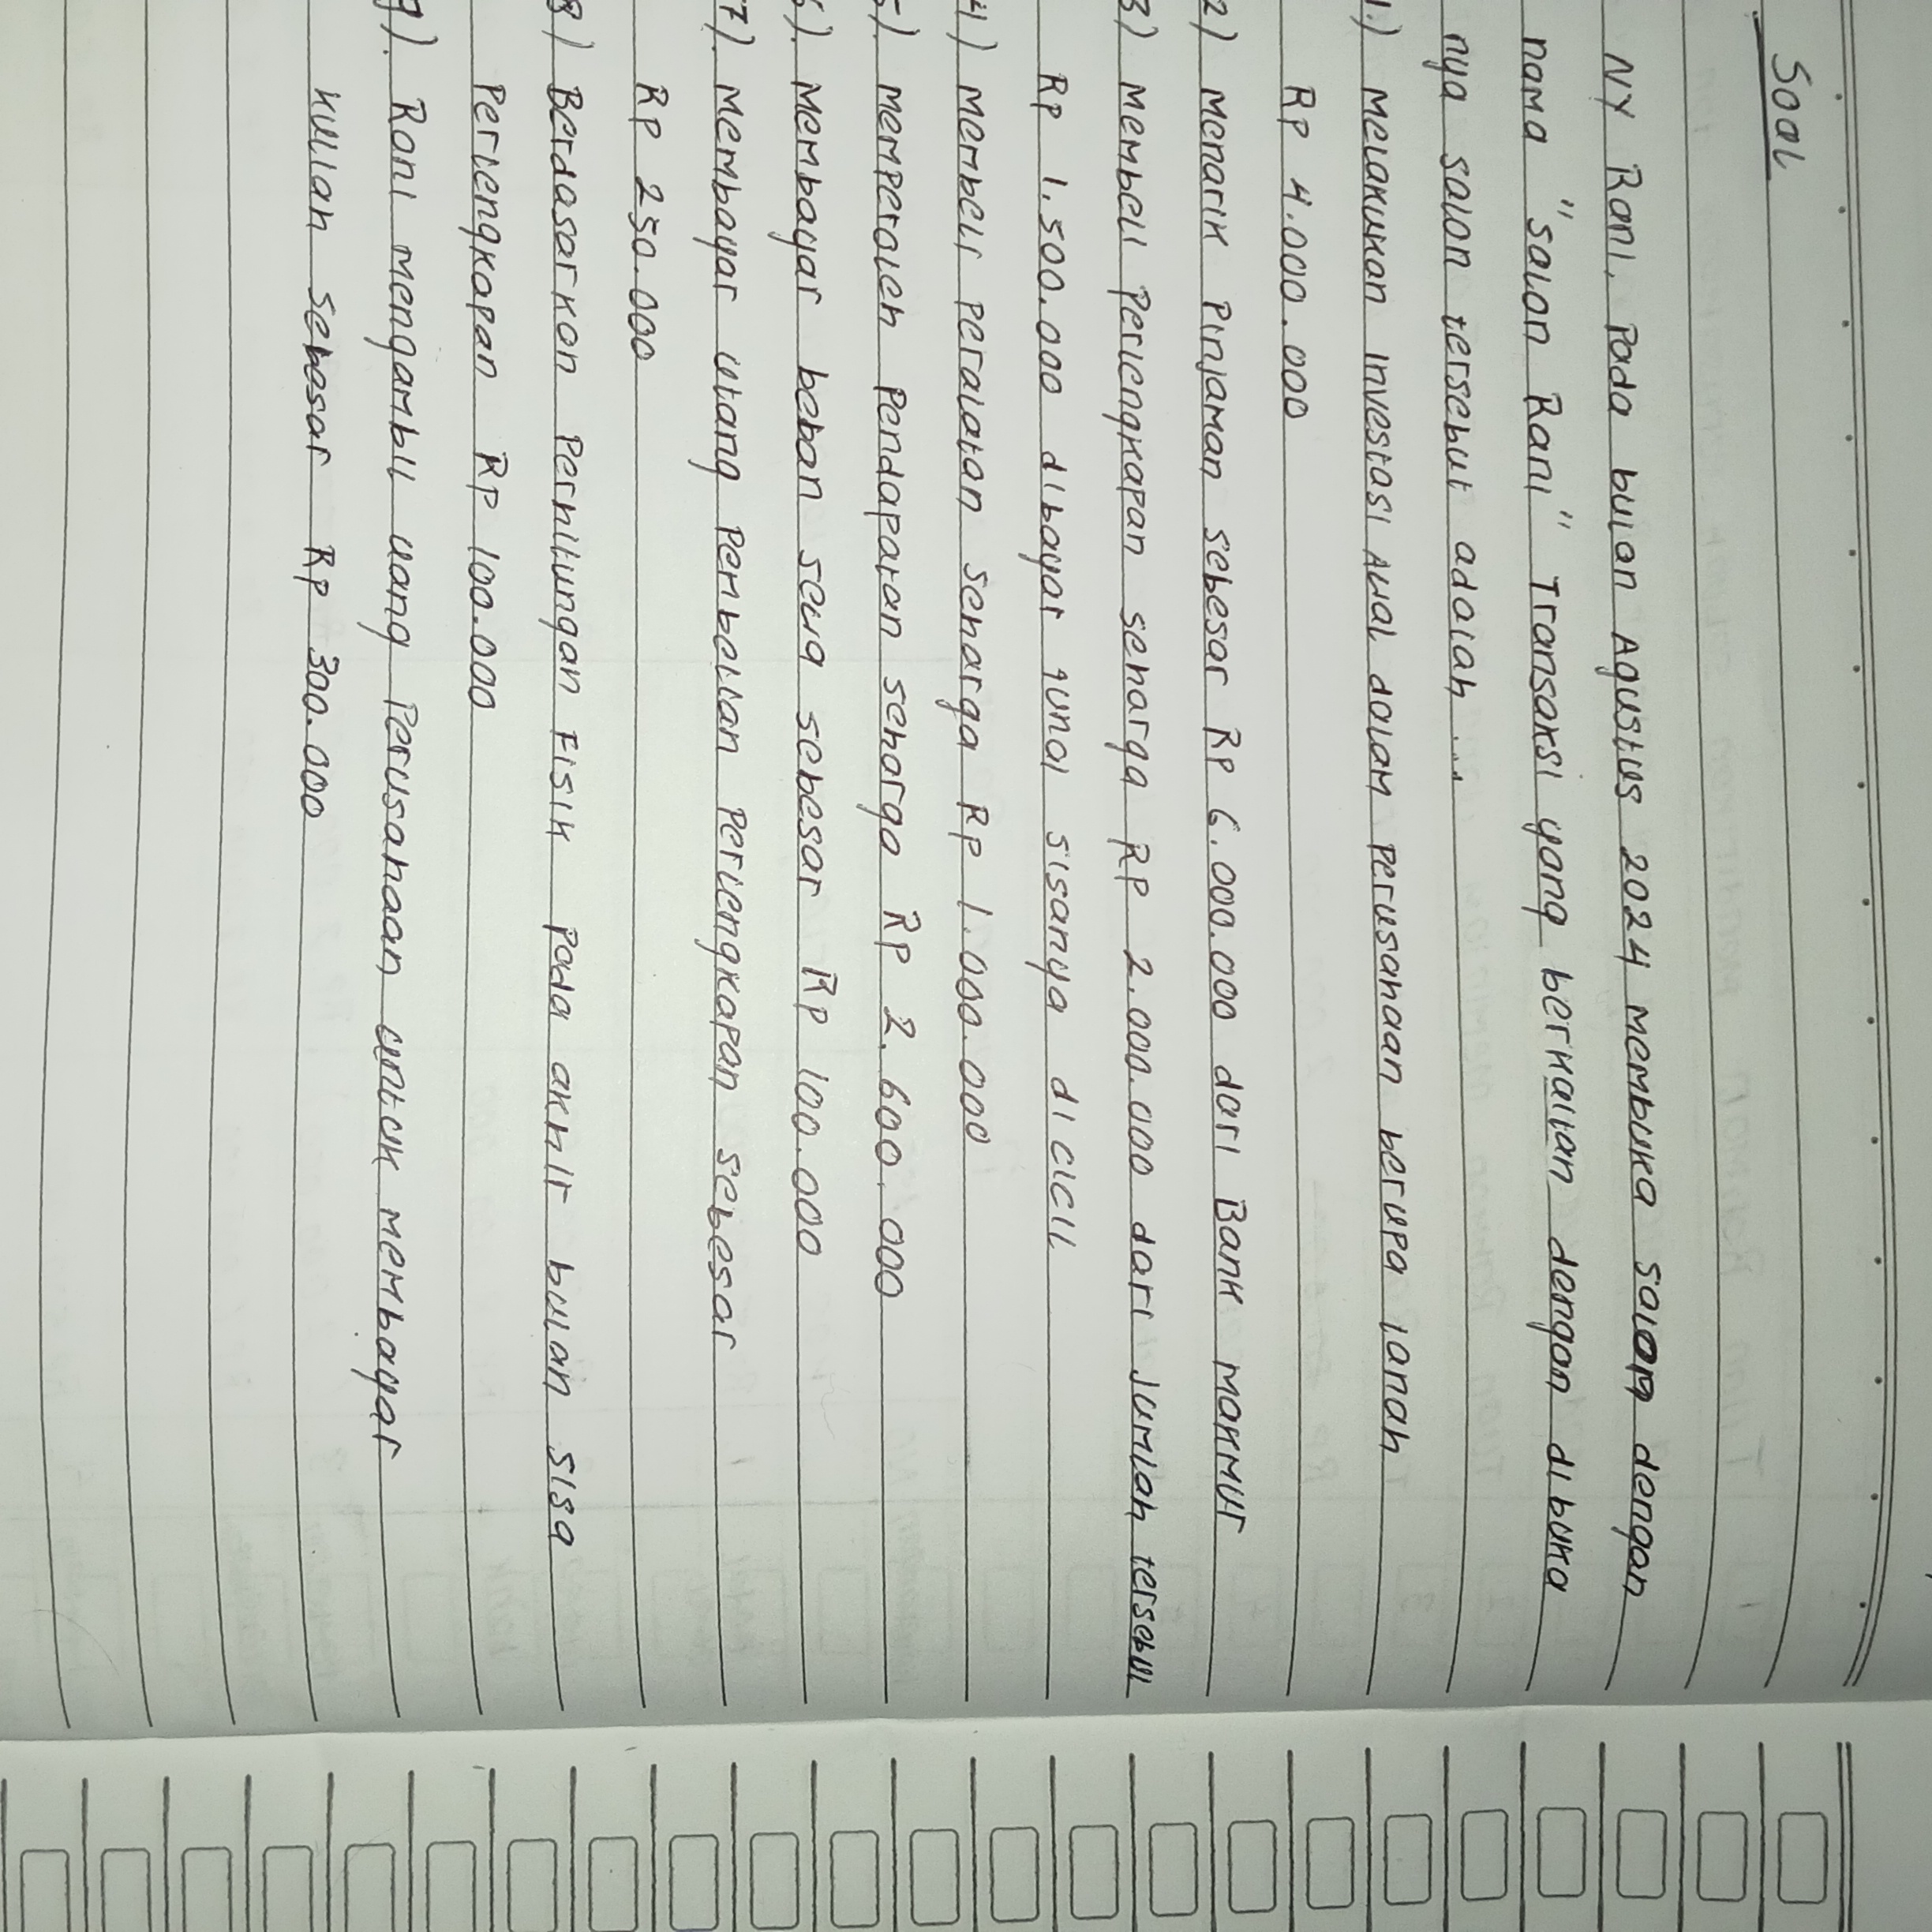 Soal
NY Rani, Pada bulan Agustus 2024 membuka salon dengan
nama "salon Rani" Transaksi yang berkaian dengan dibuka
nya salon tersebut adalah ....
1.) Melakukan investasi Awal dalam perusahaan berupa tanah
Rp 4.000.000
2) Menarik Pinjaman sebesar Rp 6.000.000 dari Bank makmur
3) membeli Perlengkapan seharga Rp 2.000.000 dari Jumlah tersebu
Rp 1.500.000 dibayar tunai sisanya di cicil
4) membeli peralatan seharga Rp 1.000.000
5) memperoleh Pendapatan seharga Rp 2.600.000
6). Membayar beban sewa sebesar Rp 100.000
7). Membayar utang Pembelian Perlengkapan sebesar
Rp 250.000
8) Berdasarkan Perhitungan Fisik Pada akhir bulan sisa
Perlengkapan Rp 100.000
9). Rani mengambil uang Perusahaan untuk membayar
kuliah sebasar Rp 300.000